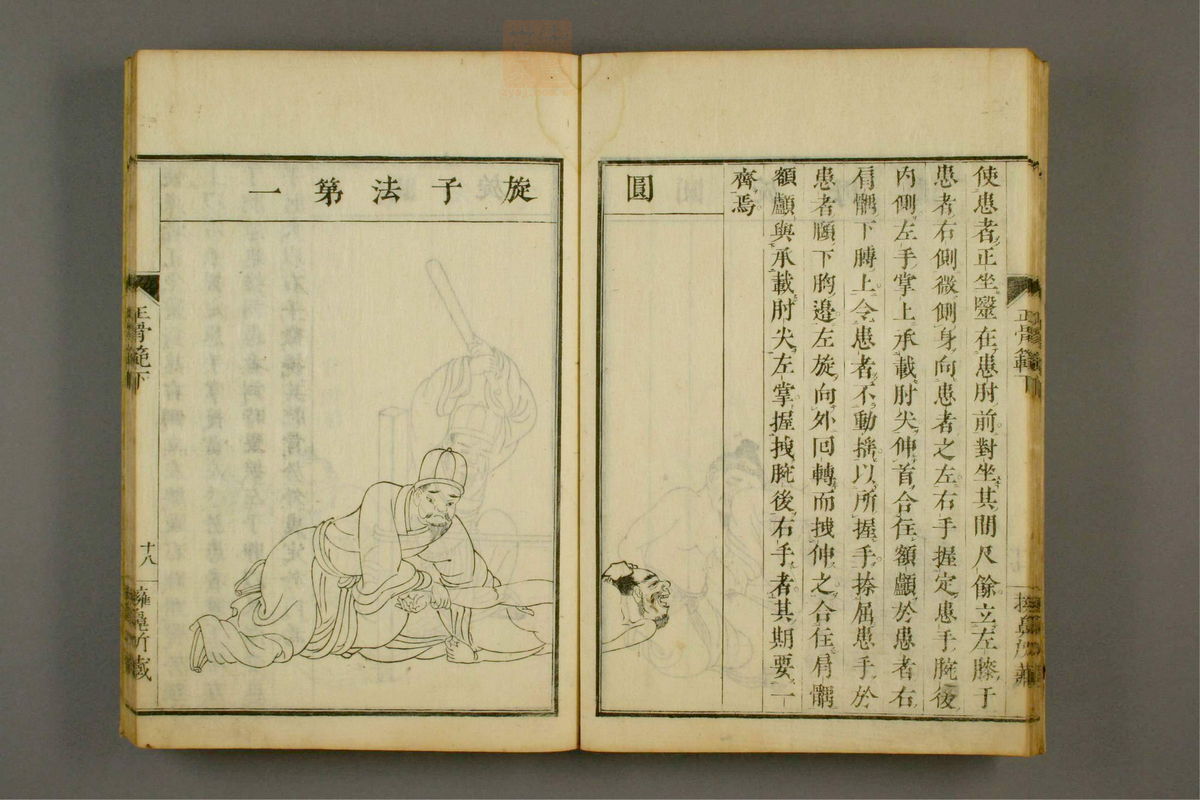 使患者正坐毉在患肘前對坐其間尺餘立左膝于
患者右側微側身向患者之左右手握定患手腕後
內側左手掌上承載肘尖伸首合住額顱於患者右
肩髃下膊上令患者不動搖以所握手捺屈患手於
患者頤下胸邊左旋向外囘轉而拽伸之合住肩髃
額顱與承載肘尖左掌握拽腕後右手者其期要一
齊焉
圓
旋子法第一
正骨範下
十八